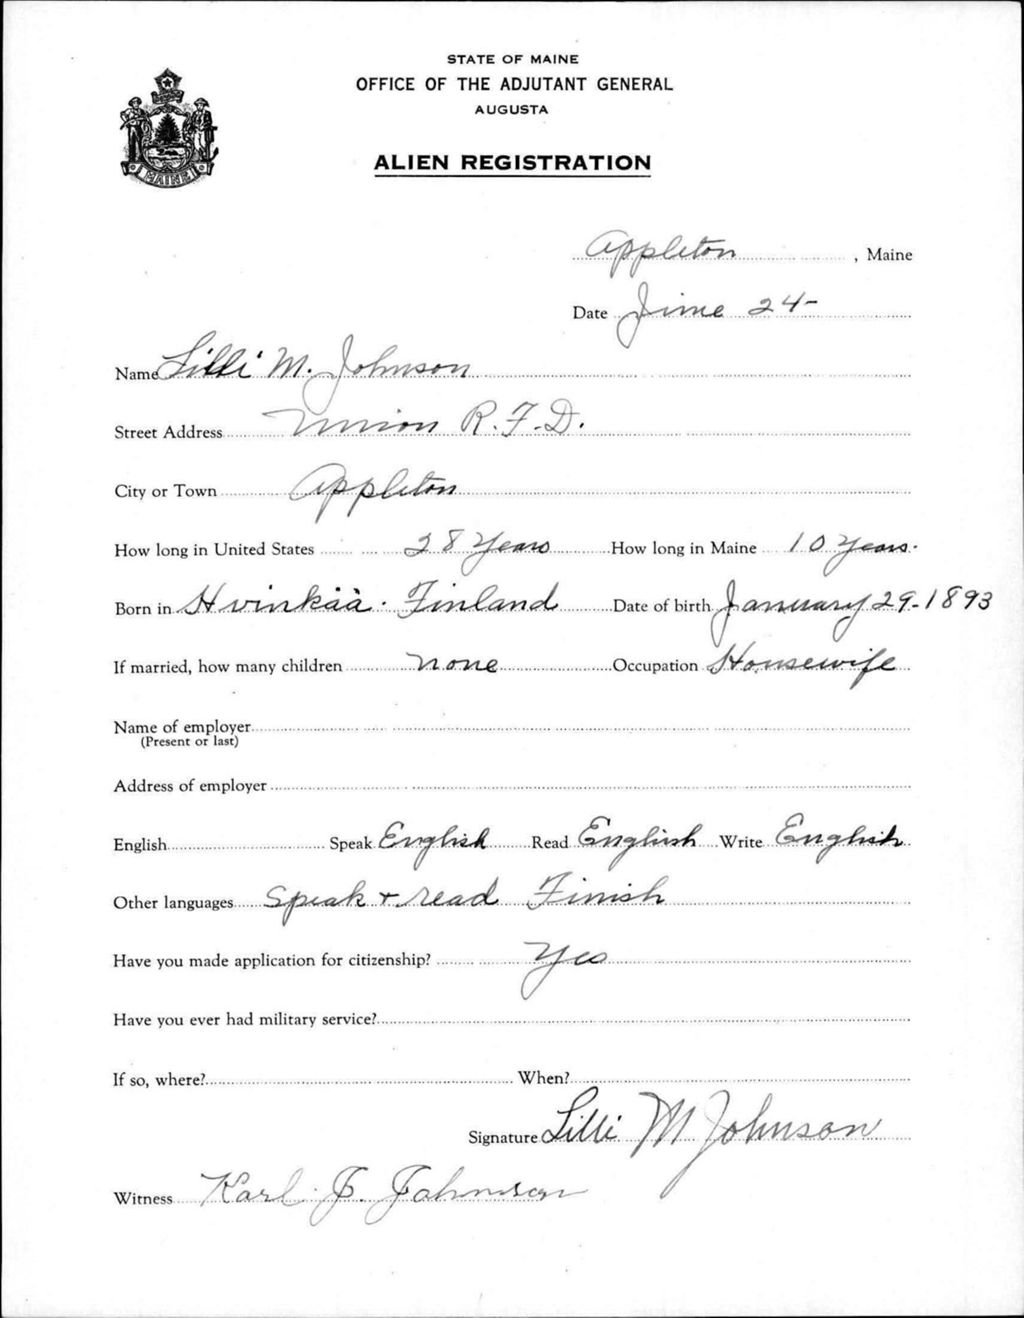 STATE OF MAINE
OFFICE OF THE ADJUTANT GENERAL
AUGUSTA
ALIEN REGISTRATION
MAINE
Appleton, Maine
Date June 24-
Name Lilli M. Johnson
Street Address Union R.F.D.
City or Town Appleton
How long in United States 28 Years How long in Maine 10 Years.
Born in Hvinkää. Finland Date of birth January 29-1893
If married, how many children none Occupation Housewife
Name of employer
(Present or last)
Address of employer
English Speak English Read English Write English
Other languages Speak + read Finish
Have you made application for citizenship? Yes
Have you ever had military service?
If so, where? When?
Signature Lilli M Johnson
Witness Karl J. Johnson